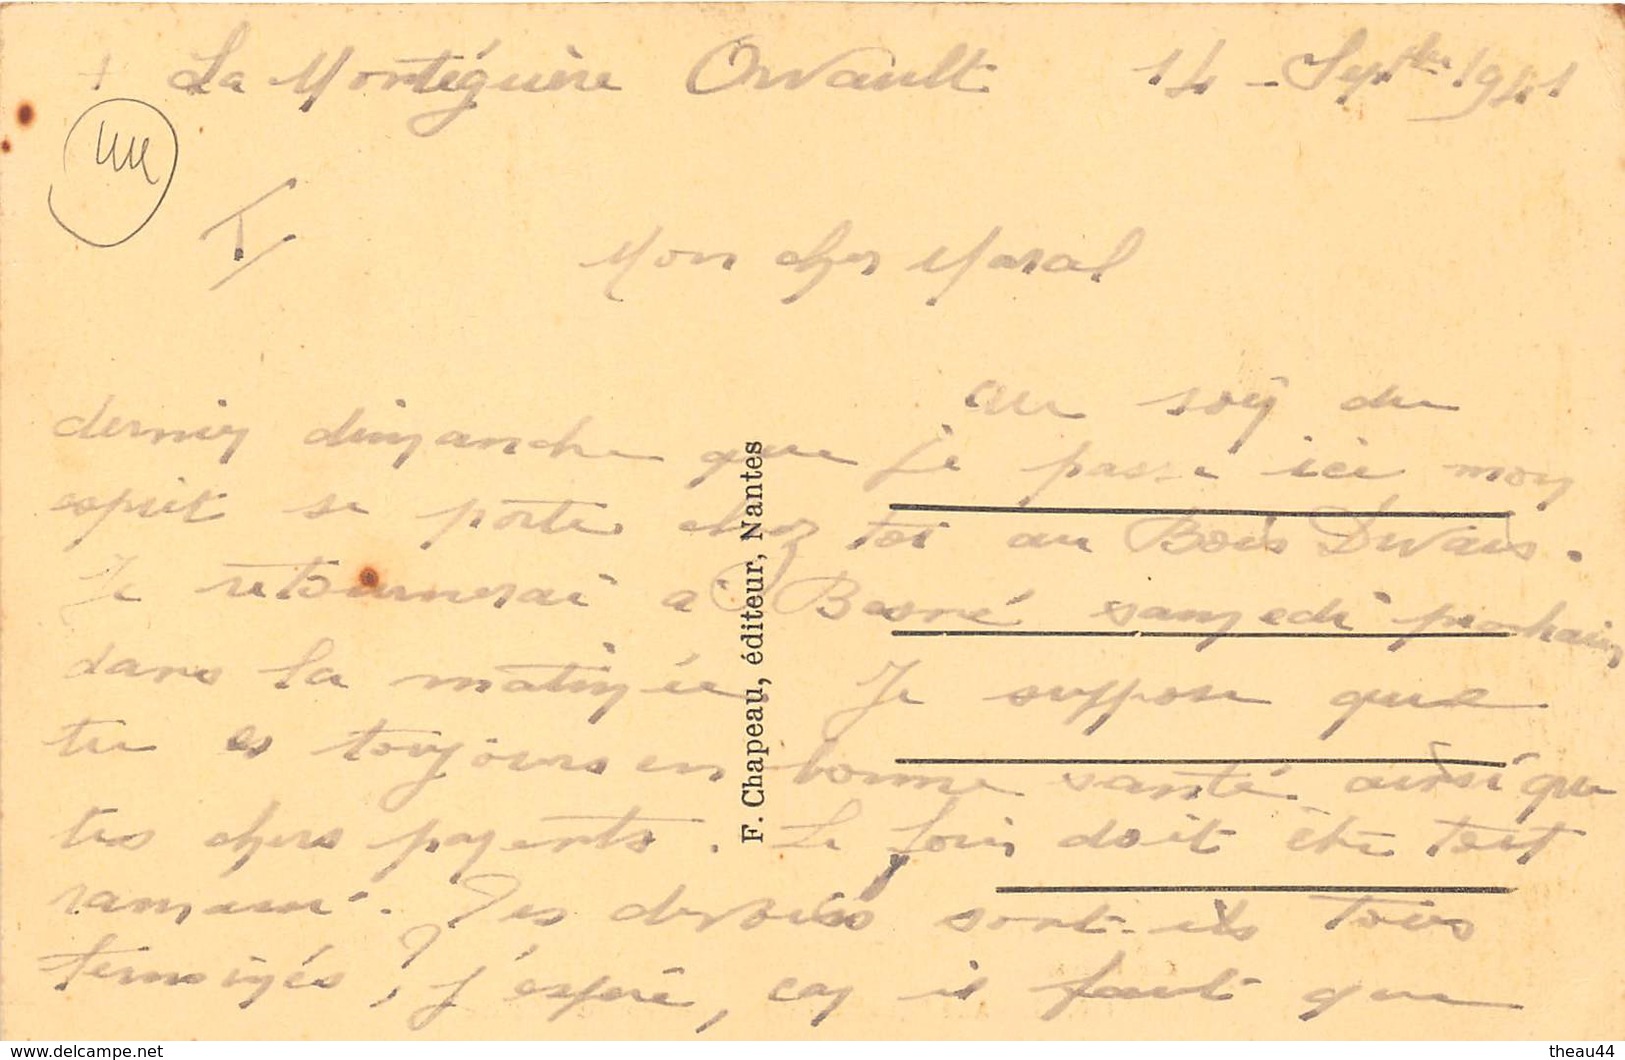 + La Mortéguère Orvault 14 - Septbre 1941
44
T
Mon cher Maral
au soir du
dernier dimanche que je passe ici mon
esprit se porte chez toi au Bois Divais.
Je retournerai à Besné samedi prochain
dans la matinée Je suppose que
tu es toujours en bonne santé ainsi que
tes chers parents. Le foin doit être tout
ramassé. Tes devoirs sont-ils tous
terminés, j'espère, car il faut que
F. Chapeau, éditeur, Nantes
https://www.delcampe.net
theau44